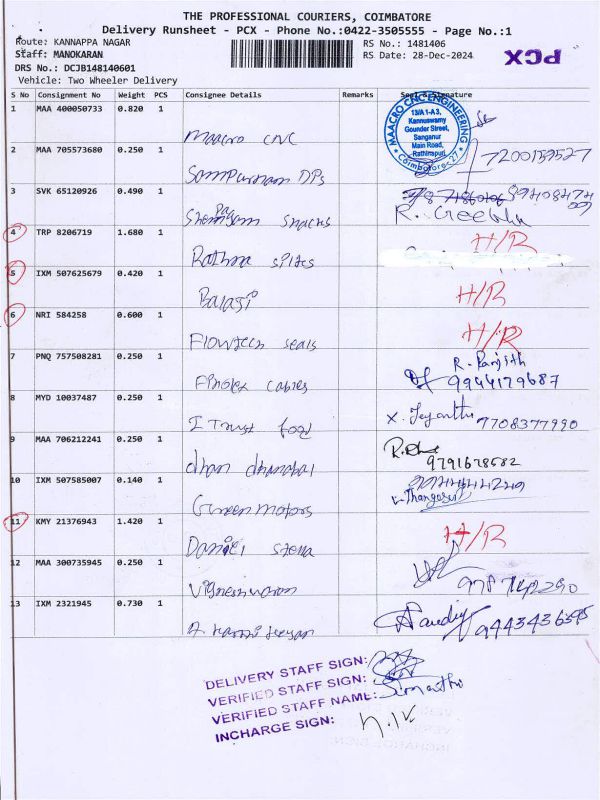 THE PROFESSIONAL COURIERS, COIMBATORE
Delivery Runsheet - PCX - Phone No.:0422-3505555 - Page No.:1
Route: KANNAPPA NAGAR RS No.: 1481406
Staff: MANOKARAN RS Date: 28-Dec-2024 PCX
DRS No.: DCJB148140601
Vehicle: Two Wheeler Delivery
S No Consignment No Weight PCS Consignee Details Remarks Seal & Signature
1 MAA 400050733 0.820 1 Maacro CNC
MAACRO CNC ENGINEERING
13/A 1-A3,
Kannuswamy
Gounder Street,
Sanganur
Main Road,
Rathinapuri
Coimbatore-27
2 MAA 705573680 0.250 1 Sampurnam DPs 7200159527
3 SVK 65120926 0.490 1 snacks
4 TRP 8206719 1.680 1 Rathna H/R
5 IXM 507625679 0.420 1 Balaji H/R
6 NRI 584258 0.600 1 Flowtech seals H/R
7 PNQ 757508281 0.250 1 Finolex cables R. Ranjith 9944179687
8 MYD 10037487 0.250 1 I Trust food X. Jeyanthi 7708377990
9 MAA 706212241 0.250 1 dhan dhanabal 9791678682
10 IXM 507585007 0.140 1 Green motors
11 KMY 21376943 1.420 1 Daniel H/R
12 MAA 300735945 0.250 1 Vigneshwaran
13 IXM 2321945 0.730 1 9443436595
DELIVERY STAFF SIGN:
VERIFIED STAFF SIGN:
VERIFIED STAFF NAME:
INCHARGE SIGN: